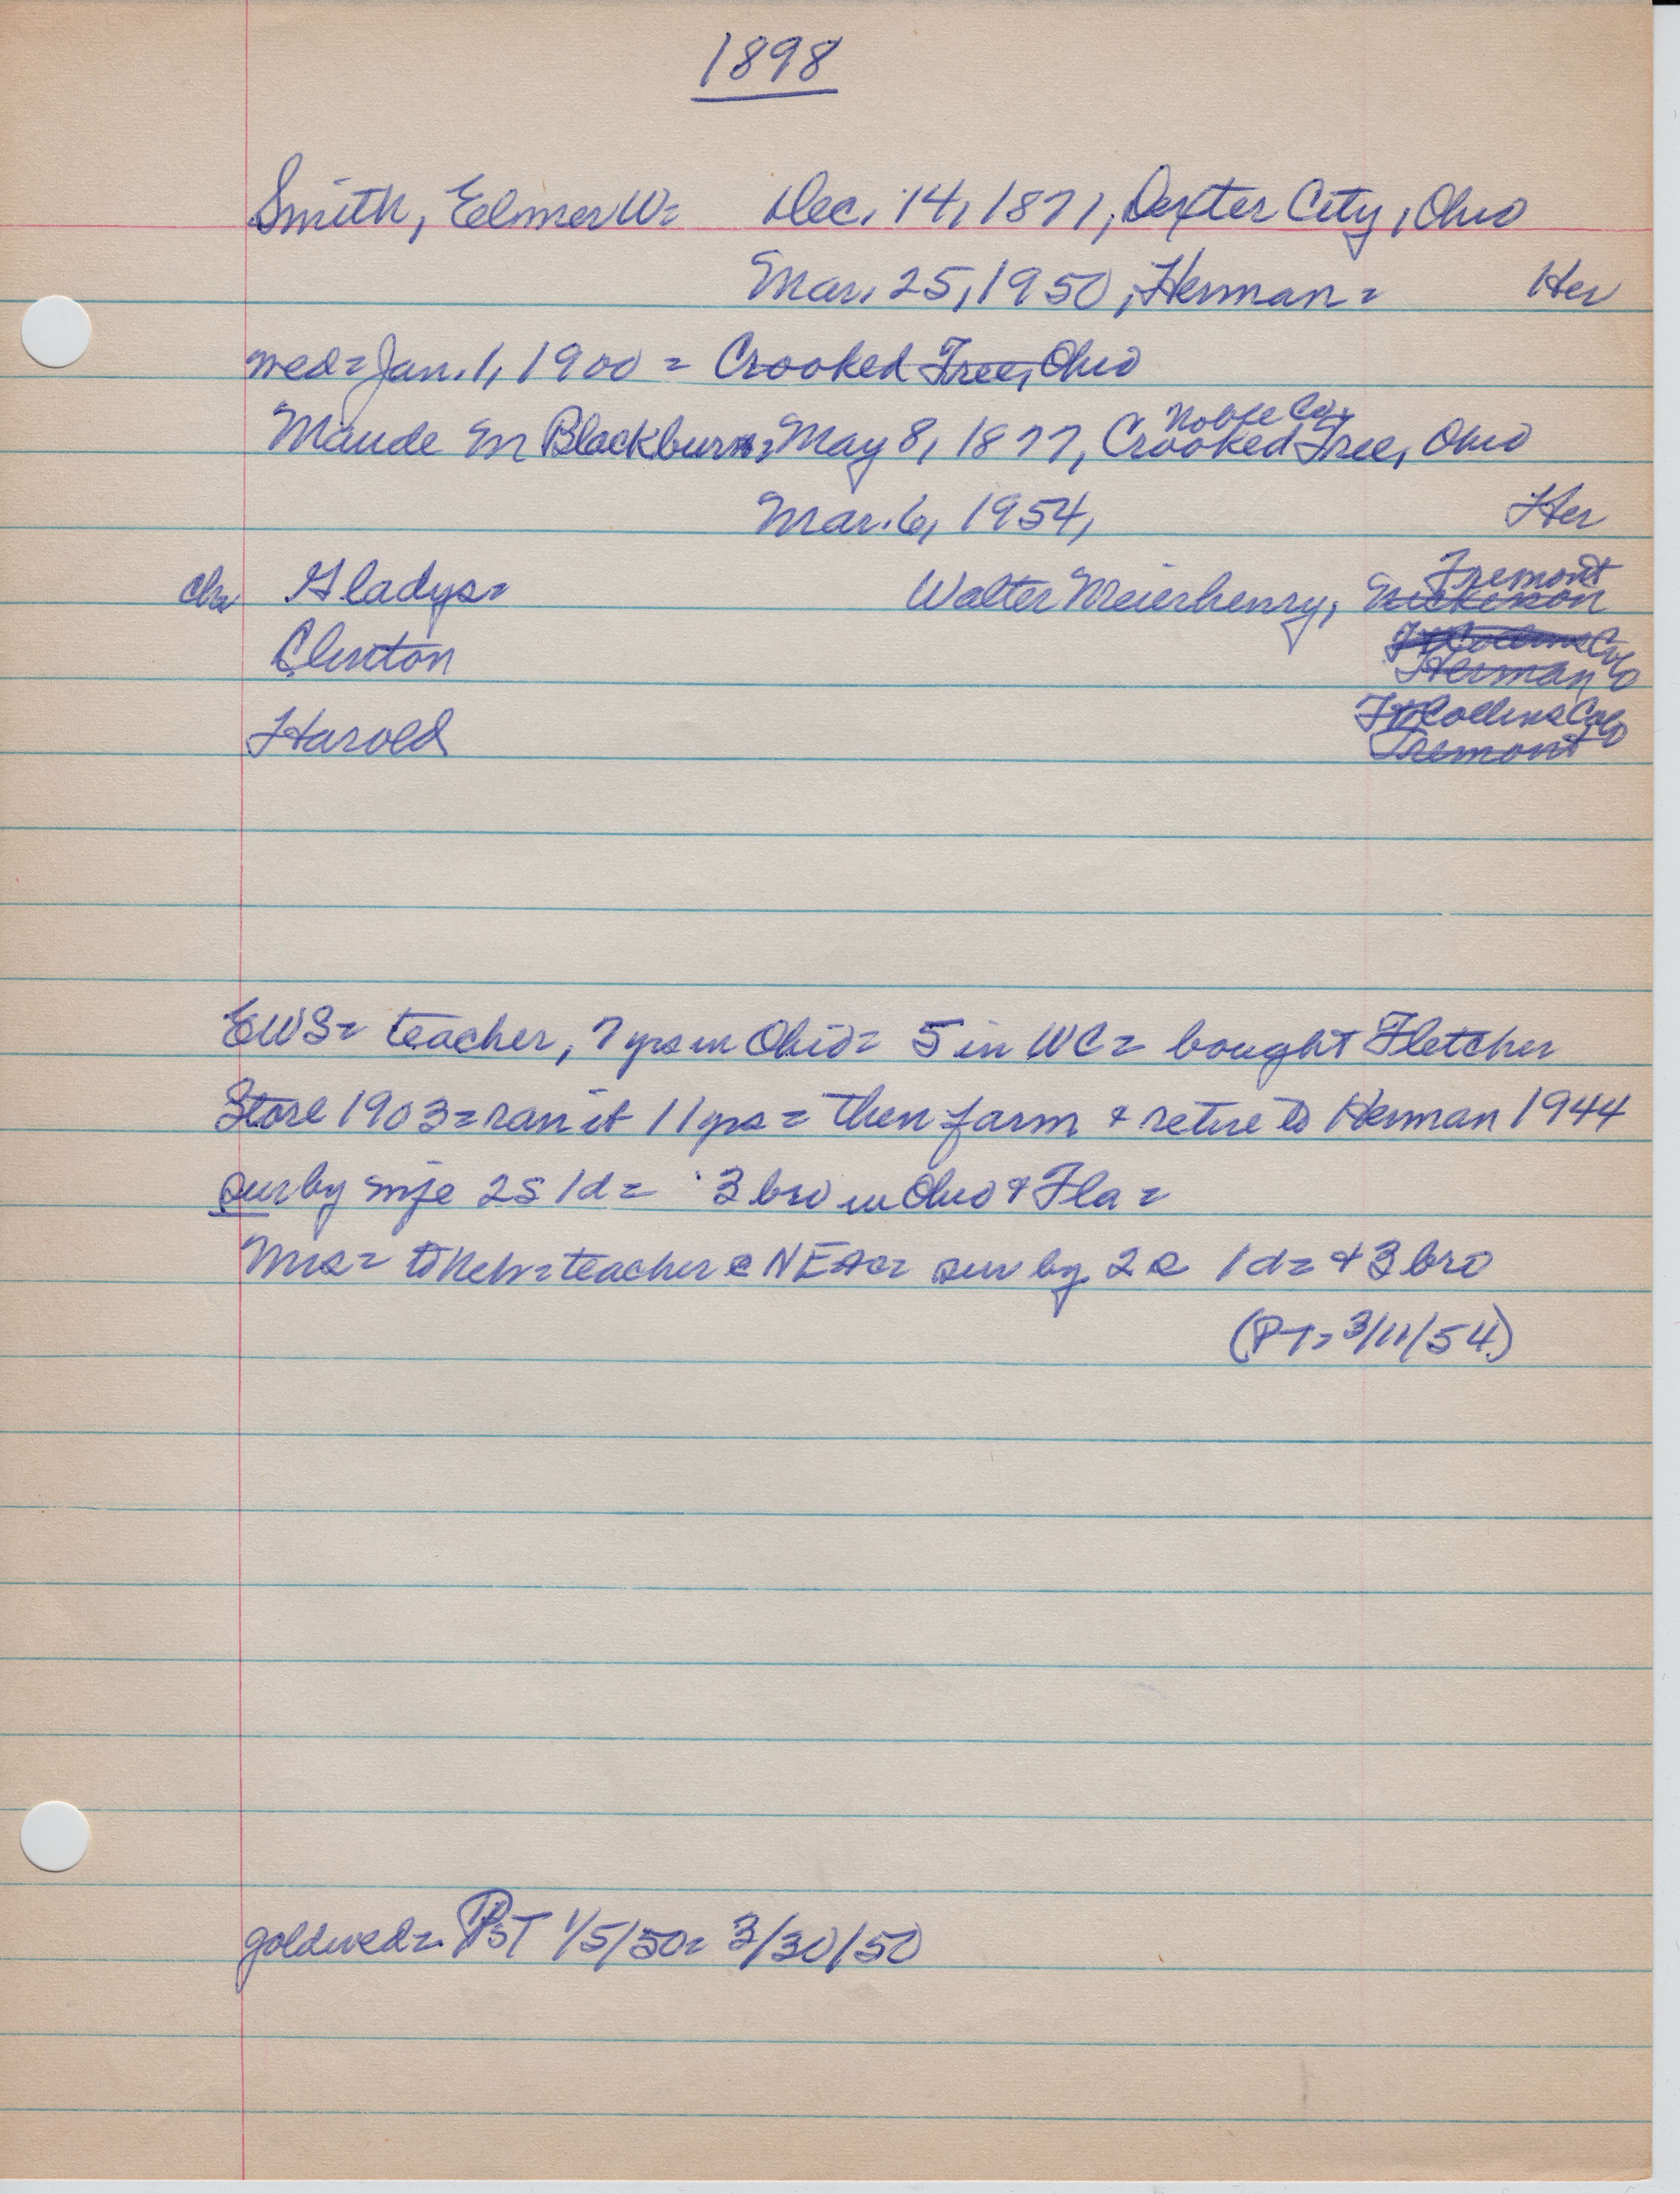 1898
Smith, Elmer W= Dec. 14, 1871, Dexter City, Ohio
Mar. 25, 1950, Herman= Her
wed= Jan. 1, 1900 = Crooked Tree, Ohio
Noble Co.
Maude M Blackburn= May 8, 1877, Crooked Tree, Ohio
Mar. 6, 1954, Her
Fremont
ch= Gladys= Walter Meierhenry, Nickerson
Ft Collins Colo
Clinton Herman
Ft Collins Colo
Harold Fremont
EWS= teacher, 7 yrs in Ohio= 5 in WC= bought Fletcher
Store 1903= ran it 11 yrs= then farm & retire to Herman 1944
sur by wife 2S 1d= 3 bro in Ohio & Fla=
Mrs= to Neb= teacher sur by 2s 1d= & 3 bro
(PT= 3/11/54)
goldwed= PsT 1/5/50= 3/30/50